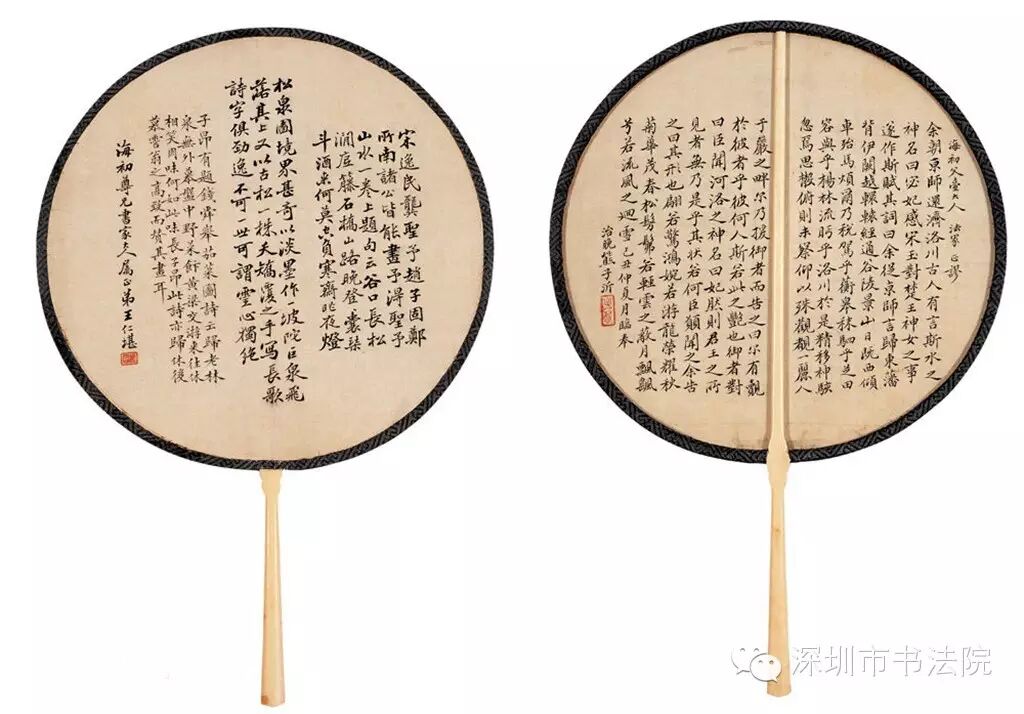 宋逸民龔聖予趙子固鄭
所南諸公皆能畫予得聖予
山水一卷上題句云谷口長松
澗底藤石橋山路晚登囊琹
斗酒來何莫負寒齋此夜燈
松泉圖境界甚奇以淡墨作一坡陀巨泉飛
落其上又以古松一株夭矯覆之手寫長歌
詩字俱勁逸不可一世可謂靈心獨絕
子昂有題錢舜舉茄菜圖詩云歸老林
泉無外慕盤中野菜飰黃粱交游來往休
相笑肉味何如此味長子昂此詩亦歸休後
慕霅翁之高致而贊其畫耳
海初尊兄書家大人屬正弟王仁堪
海初父臺大人 法家正謬
余朝京師還濟洛川古人有言斯水之
神名曰宓妃感宋玉對楚王神女之事
遂作斯賦其詞曰余從京師言歸東藩
背伊闕越轘轅經通谷陵景山日既西傾
車殆馬煩爾乃稅駕乎蘅皋秣駟乎芝田
容與乎楊林流眄乎洛川於是精移神駭
忽焉思散俯則未察仰以殊觀覩一麗人
于巖之畔尒乃援御者而告之曰尒有覿
於彼者乎彼何人斯若此之艷也御者對
曰臣聞河洛之神名曰妃然則君王之所
見者無乃是乎其狀若何臣願聞之余告
之曰其形也翩若驚鴻婉若游龍榮耀秋
菊華茂春松髣髴若輕雲之蔽月飄飄
兮若流風之迴雪己丑仲夏月臨奉
治晚熊子沂
深圳市书法院